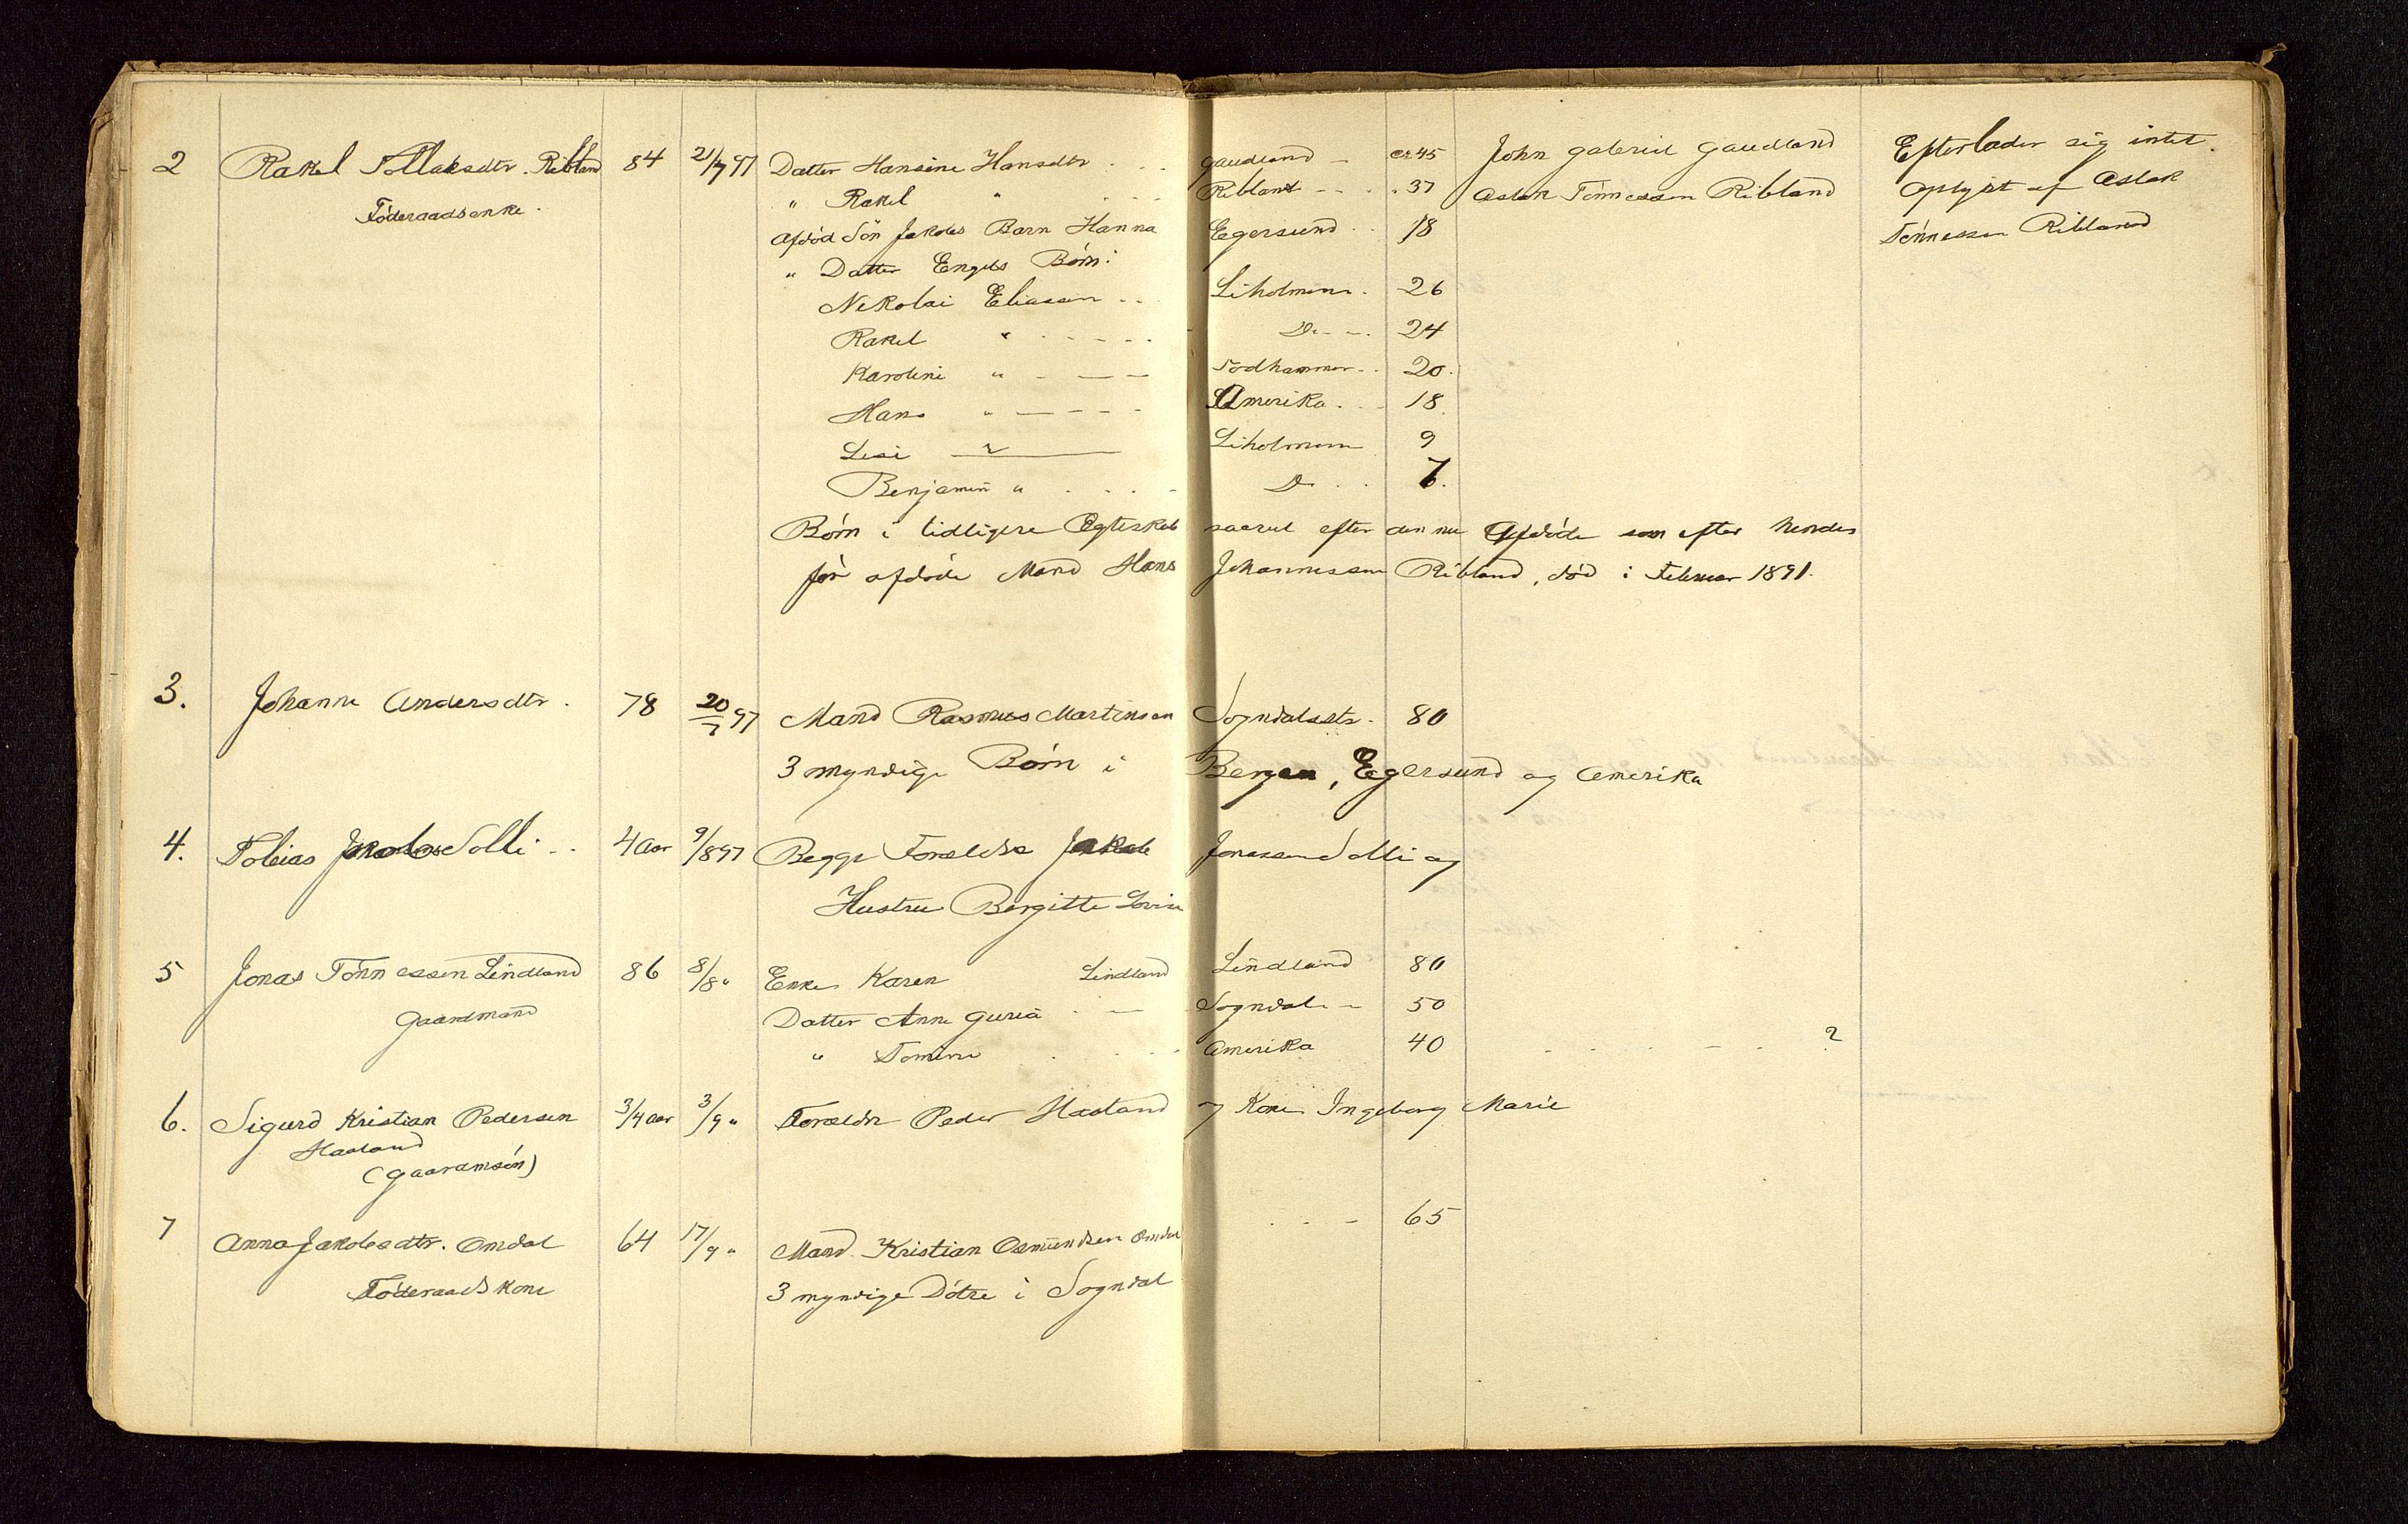 2 Rakel Tollaksdtr. Ribland 84 21/7 97 Datter Hansine Hansdtr . . . Gaudland - ca 45 John Gabriel Gaudland Efterlader sig intet.
Föderaadsenke. " Rakel " . - - - Ribland - - . " 37 Aslak Tönnessen Ribland Oplyst af Aslak
Afdöd Sön Jakobs Barn Hanna Egersund . . 18 Tönnessen Ribland
" Datter Engels Börn:
Nikolai Eliassen . . Liholmen . 26
Rakel " . - - - - Do - - . 24
Karoline " - — — Sodhammer . . 20.
Hans " — - - - Amerika . - 18.
Lesi " ——— Liholmen 9
Benjamin " . . . - Do . . 7.
Börn i tidligere Egteskab saavel efter den nu Afdöde som efter hendes
för afdöde Mand Hans Johannessen Ribland, död i Februar 1891.
3. Johanne Andersdtr. 78 20/7 97 Mand Rasmus Martinsen Sogndalsstr. 80
3 myndige Börn i Bergen, Egersund og Amerika
4. Tobias Jakobs Solli - . 4 Aar 9/8 97 Begge Forældre Jakob Jonassen Solli og
Hustru Bergitte Lovise
5 Jonas Tönnessen Lindland 86 8/8 " Enke Karen Lindland Lindland 80
Gaardmand Datter Anne Guria . — Sogndal - - 50
" Tomine . . - Amerika 40 - . - . - - . ?
6. Sigurd Kristian Pedersen 3/4 Aar 3/9 " Forældre Peder Haaland og Kone Ingeborg Marie
Haaland
(Gaardmsön)
7 Anna Jakobsdtr. Omdal 64 17/9 " Mand Kristian Osmundsen Omdal . - - 65
Föderaadskone 3 myndige Dötre i Sogndal